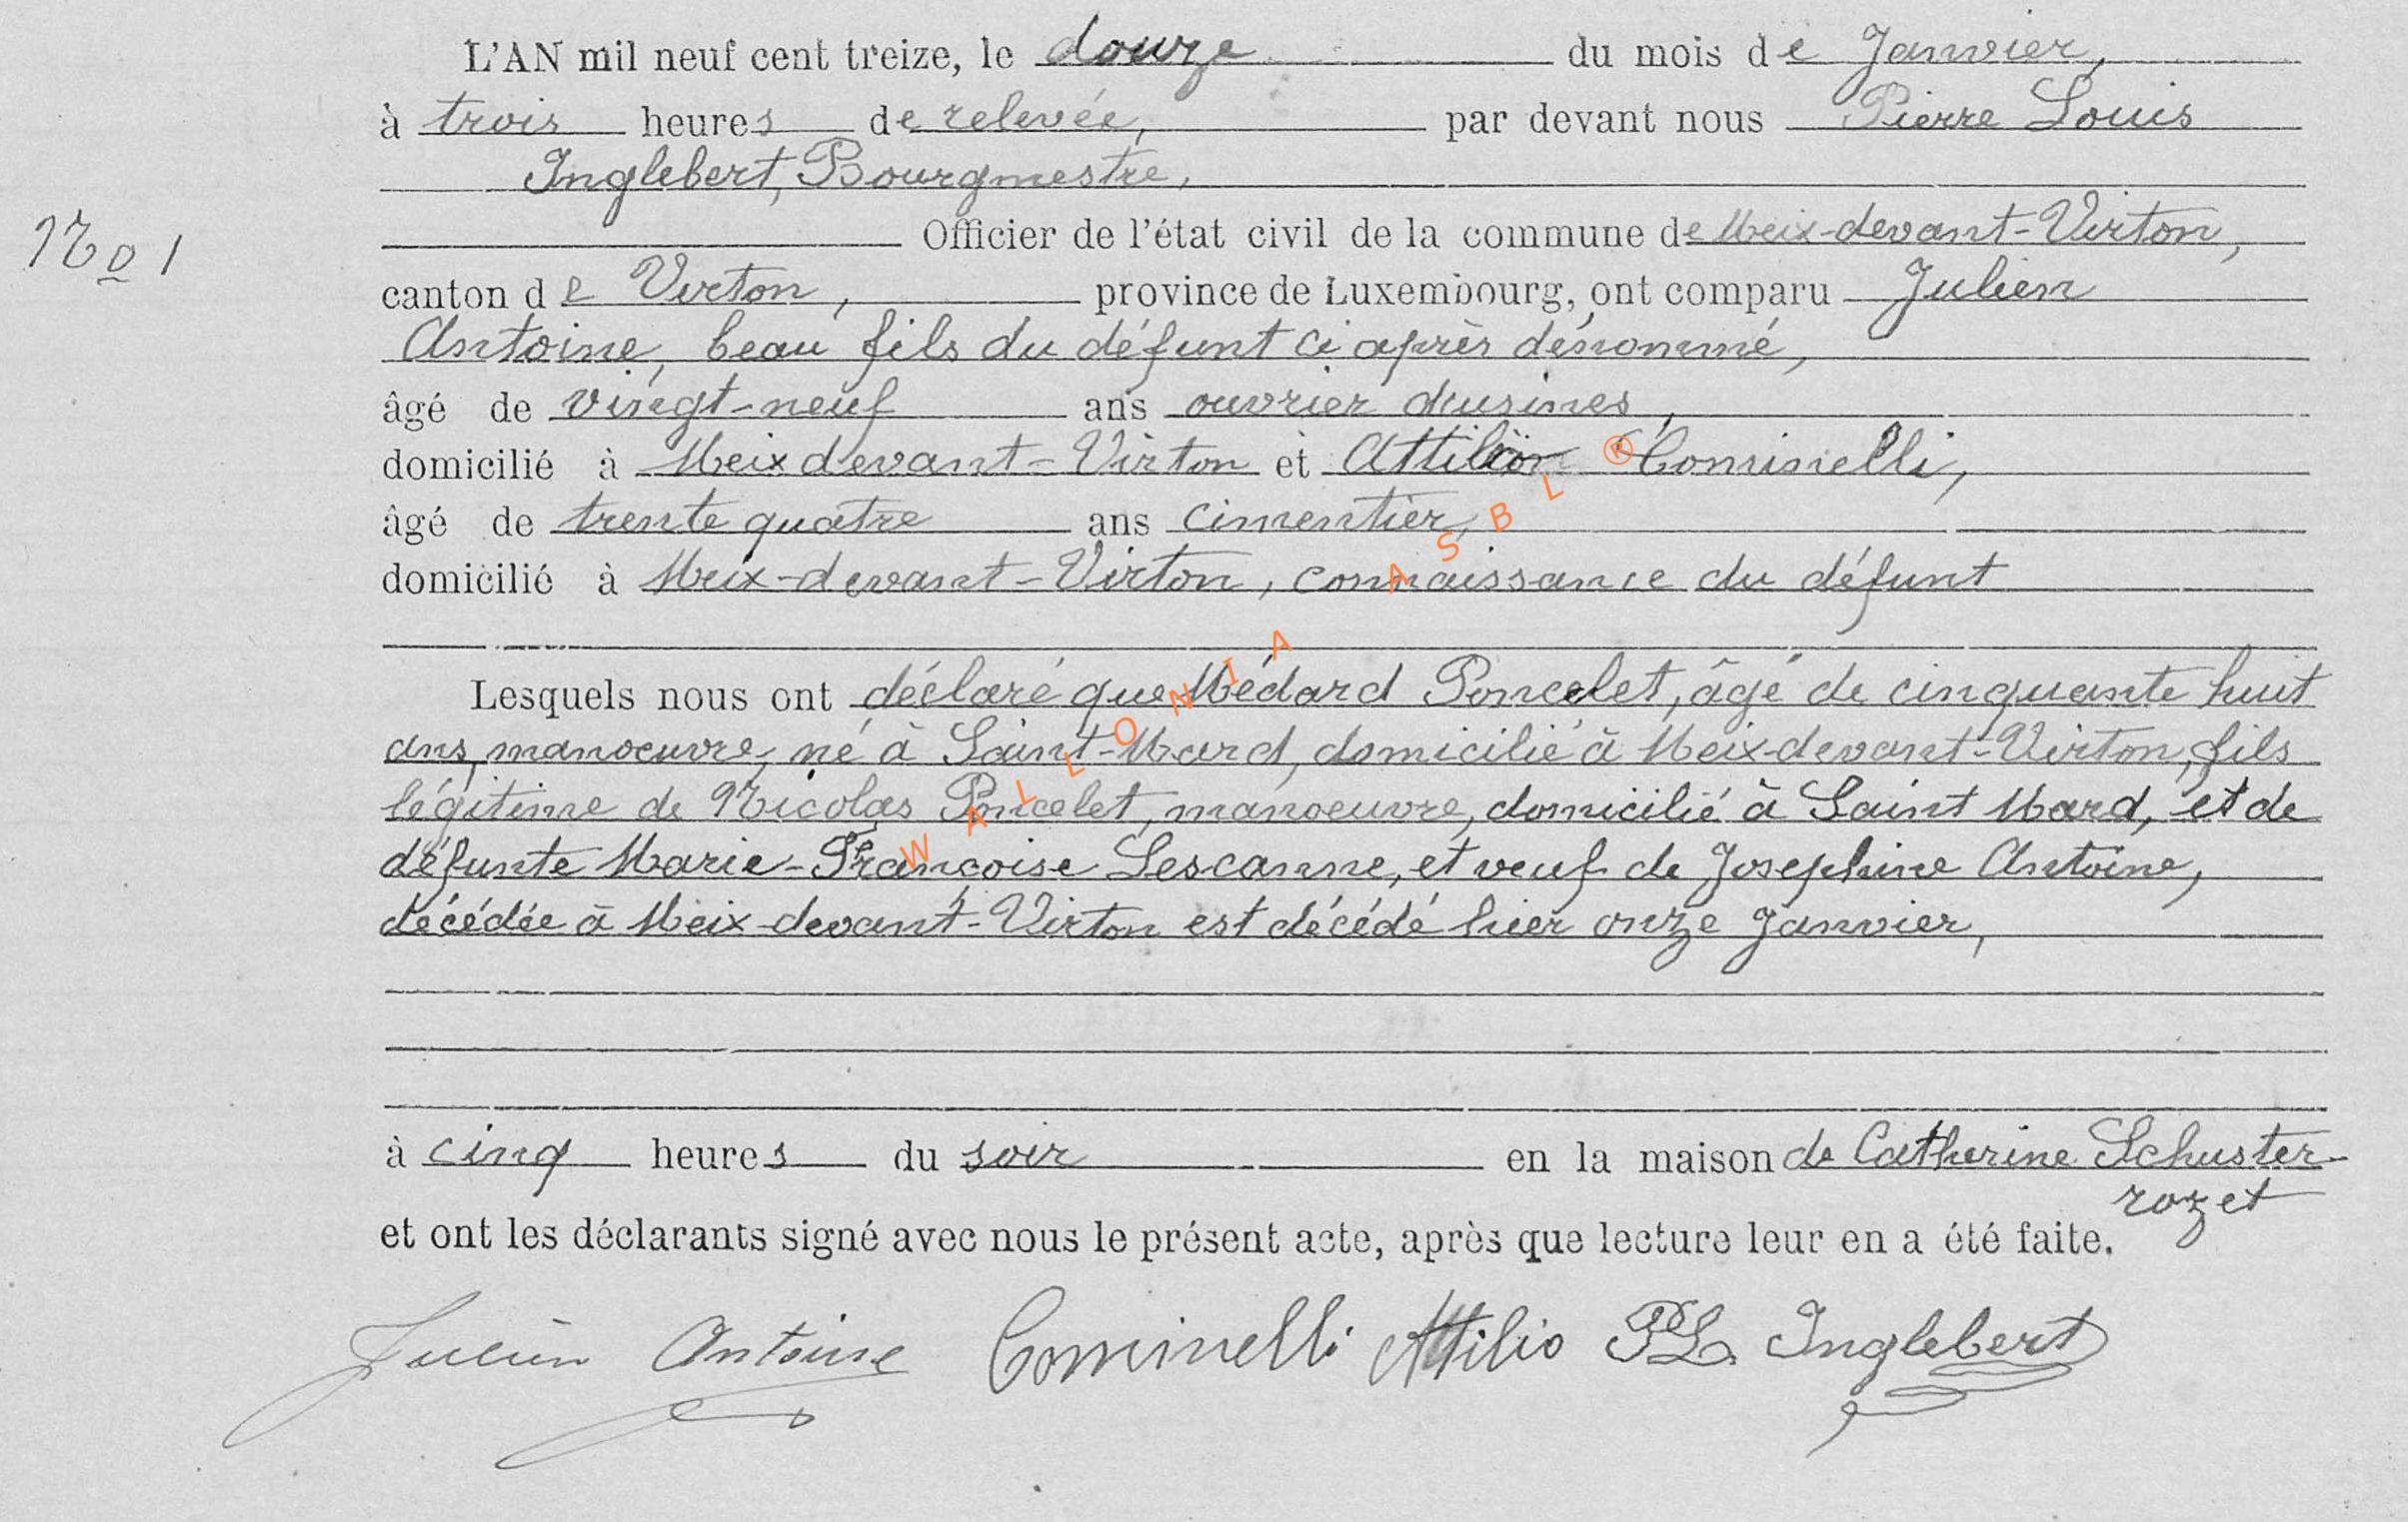 L'AN mil neuf cent treize, le douze du mois de Janvier,
à trois heures de relevée, par devant nous Pierre Louis
Inglebert, Bourgmestre,
No 1
Officier de l'état civil de la commune de Meix-devant-Virton,
canton de Virton, province de Luxembourg, ont comparu Julien
Antoine, beau fils du défunt ci après dénommé,
âgé de vingt-neuf ans ouvrier d'usines,
domicilié à Meix devant-Virton et Attilio Cominelli,
âgé de trente quatre ans cimentier,
domicilié à Meix-devant-Virton, connaissance du défunt
Lesquels nous ont déclaré que Médard Poncelet, âgé de cinquante huit
ans, manoeuvre, né à Saint-Mard, domicilié à Meix-devant-Virton, fils
légitime de Nicolas Poncelet, manoeuvre, domicilié à Saint Mard, et de
défunte Marie-Françoise Lescanne, et veuf de Josephine Antoine,
décédée à Meix-devant-Virton est décédé hier onze Janvier,
à cinq heures du soir en la maison de Catherine Schuster
rozet
et ont les déclarants signé avec nous le présent acte, après que lecture leur en a été faite.
Julien Antoine Cominelli Attilio PL Inglebert
WALLONIA ASBL ®